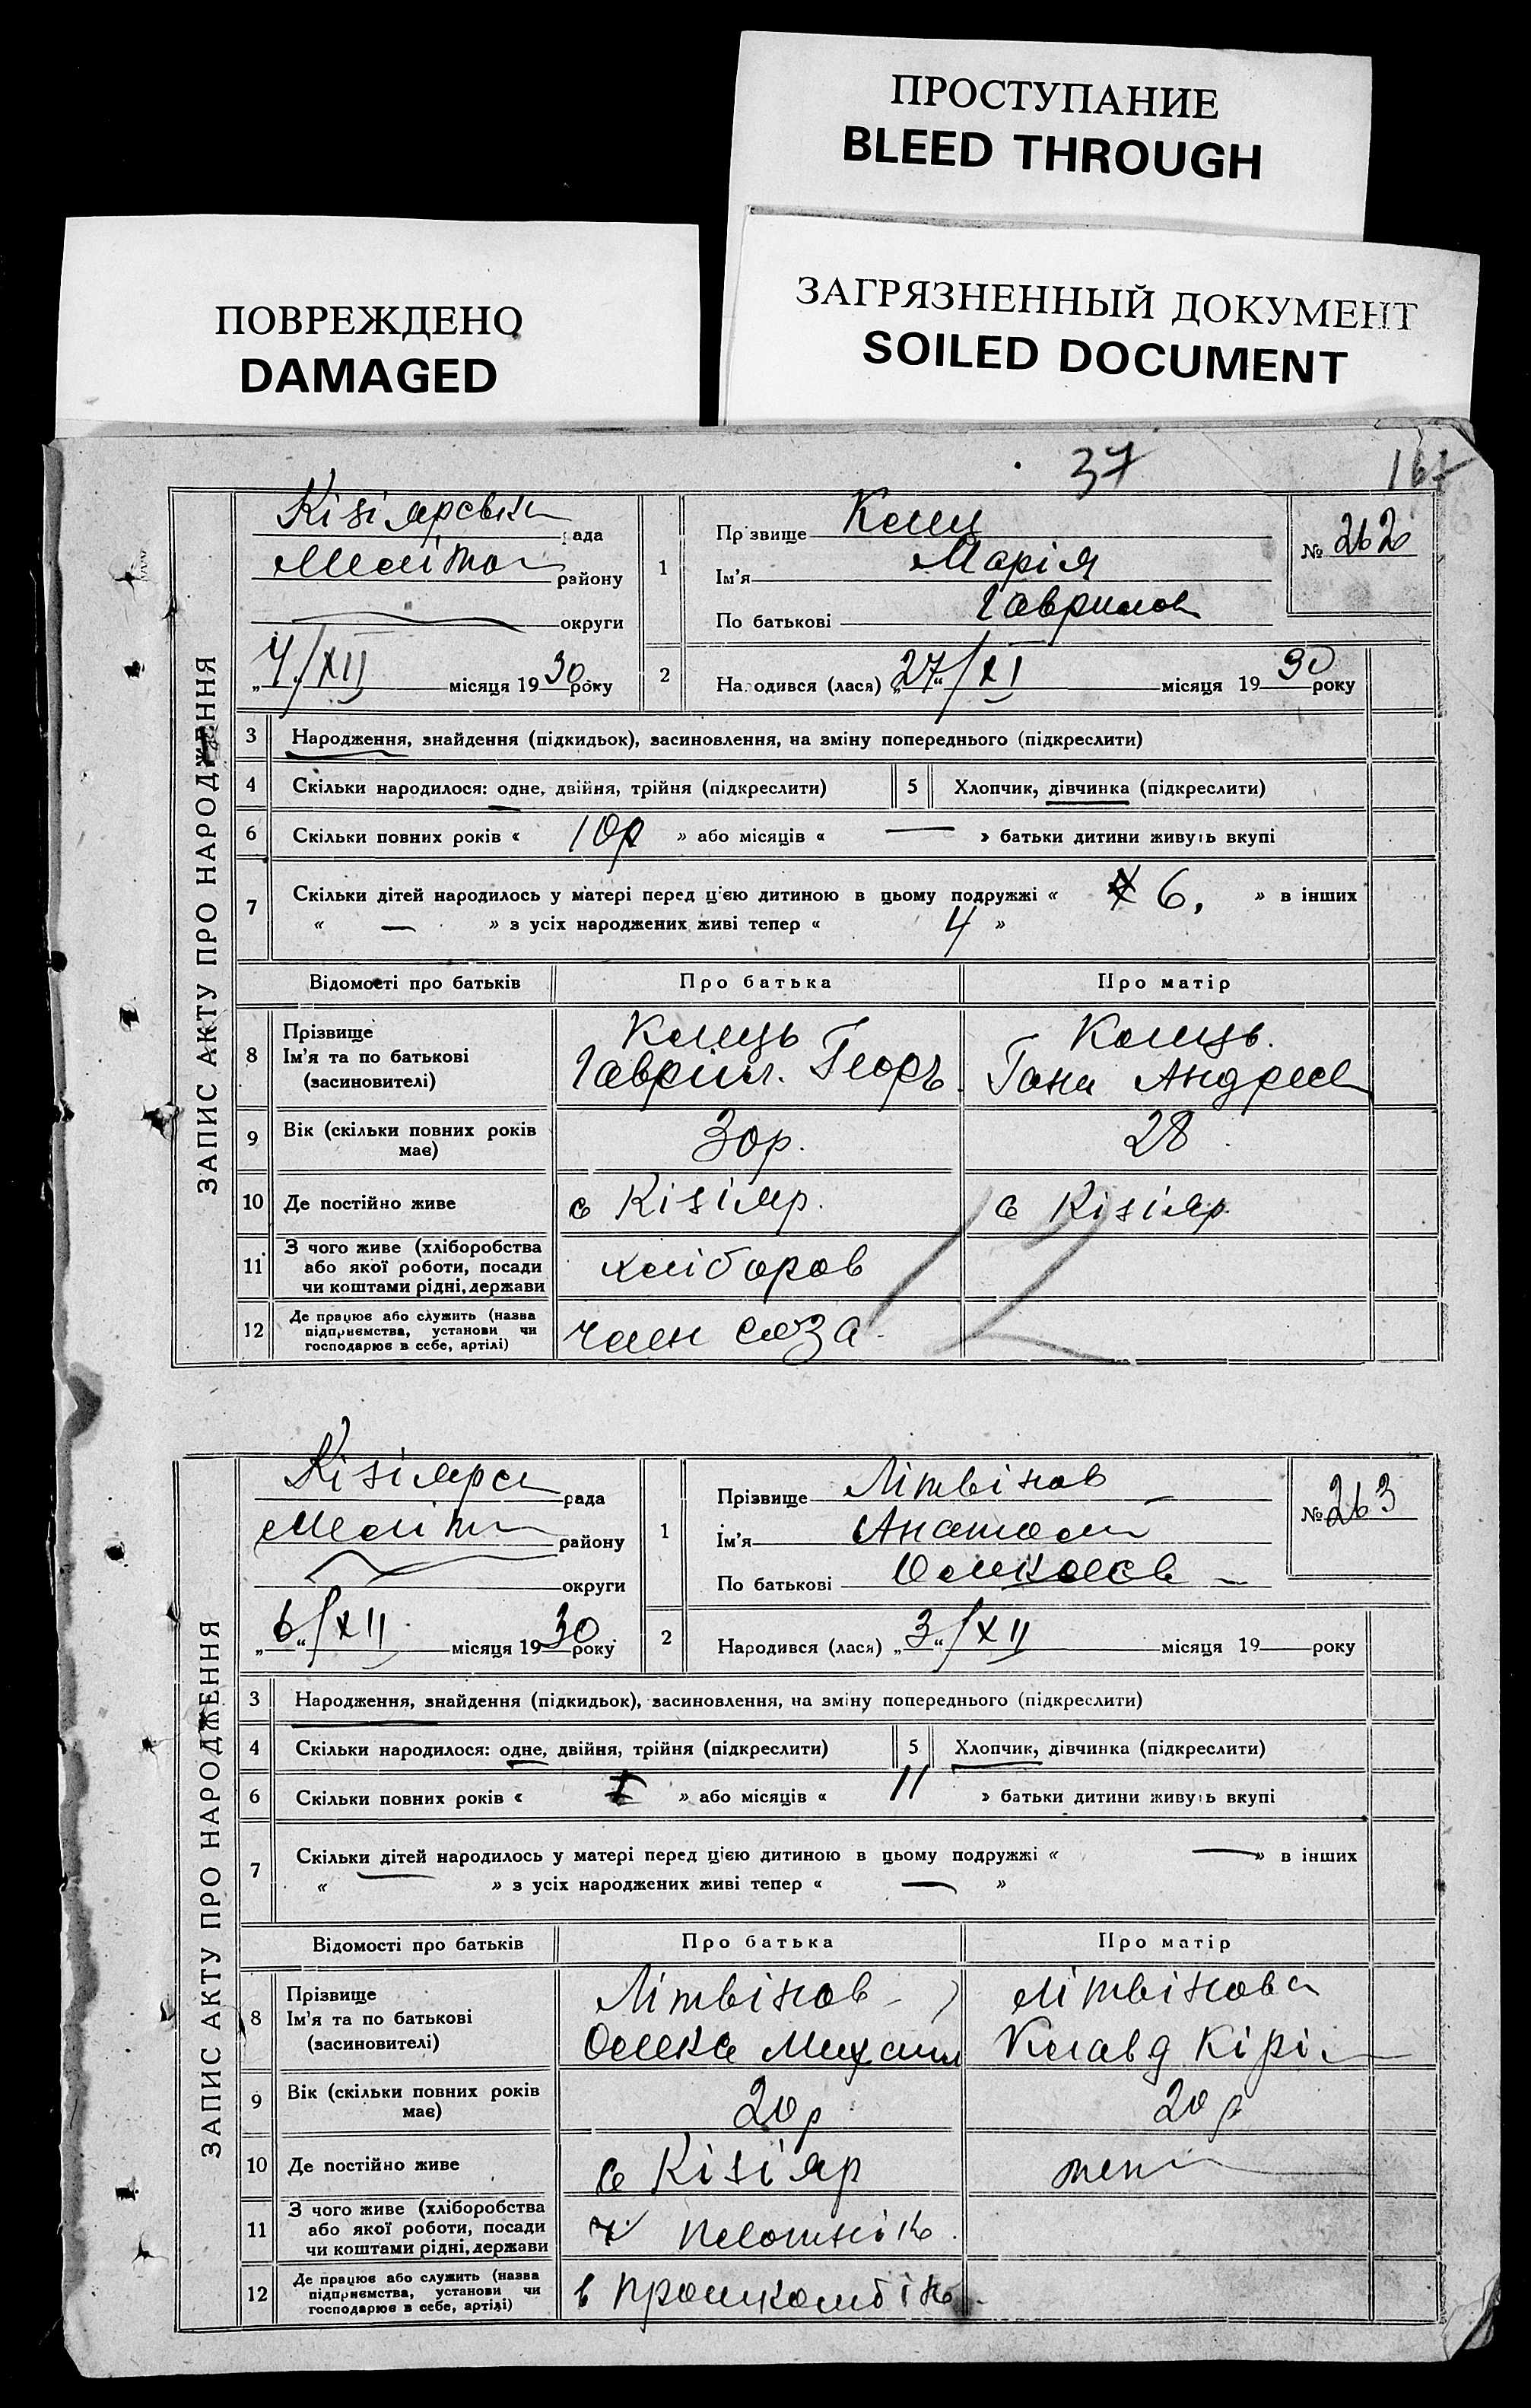 ПРОСТУПАНИЕ
BLEED THROUGH
ЗАГРЯЗНЕННЫЙ ДОКУМЕНТ
SOILED DOCUMENT
ПОВРЕЖДЕНО
DAMAGED
37
167
ЗАПИС АКТУ ПРО НАРОДЖЕННЯ
Кізіярська рада
Меліто района
округи
„4“/XII місяця 1930 року
1
Прізвище
Ім'я Марія
По батькові Гаврилов
№ 262
2
Народився (лася) „27“/XI місяця 1930 року
3 Народження, знайдення (підкидьок), засиновлення, на зміну попереднього (підкреслити)
4 Скільки народилося: одне, двійня, трійня (підкреслити)
5 Хлопчик, дівчинка (підкреслити)
6 Скільки повних років « 10р » або місяців « — » батьки дитини живуть вкупі
7 Скільки дітей народилось у матері перед цією дитиною в цьому подружжі « 6, » в інших
« — » з усіх народжених живі тепер « 4 »
Відомості про батьків Про батька Про матір
8 Прізвище
Ім'я та по батькові
(засиновителі)
Гаврил. Георг.
Гана Андреев
9 Вік (скільки повних років має) 30р. 28
10 Де постійно живе с Кізіяр. с Кізіяр.
11 З чого живе (хліборобства
або якої роботи, посади
чи коштами рідні, держави
хлібороб
12 Де працює або служить (назва
підприємства, установи чи
господарює в себе, артілі)
член соза
ЗАПИС АКТУ ПРО НАРОДЖЕННЯ
Кізіярс рада
Меліт района
округи
„6“/XII місяця 1930 року
1
Прізвище Літвінов
Ім'я Анатолі
По батькові
№ 263
2
Народився (лася) „3“/XII місяця 19 року
3 Народження, знайдення (підкидьок), засиновлення, на зміну попереднього (підкреслити)
4 Скільки народилося: одне, двійня, трійня (підкреслити)
5 Хлопчик, дівчинка (підкреслити)
6 Скільки повних років « » або місяців « 11 » батьки дитини живуть вкупі
7 Скільки дітей народилось у матері перед цією дитиною в цьому подружжі « — » в інших
« » з усіх народжених живі тепер « — »
Відомості про батьків Про батька Про матір
8 Прізвище
Ім'я та по батькові
(засиновителі)
Літвінов
Олекс Михаил
Літвінова
Клавд Кіріл
9 Вік (скільки повних років має) 20р 20р
10 Де постійно живе с Кізіяр теж
11 З чого живе (хліборобства
або якої роботи, посади
чи коштами рідні, держави
плотнік
12 Де працює або служить (назва
підприємства, установи чи
господарює в себе, артілі)
в промкомбін